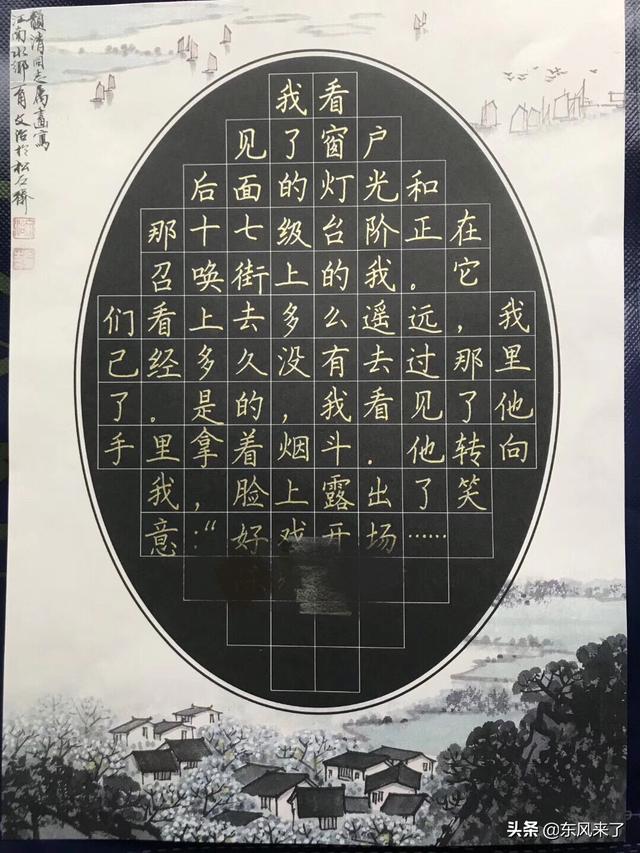 韻清同志属畫寫
江南水鄉一角 文治於松石齋
我看
见了窗户
后面的灯光和
那十七级台阶正在
召唤街上的我。它
们看上去多么遥远，我
已经多久没有去过那里
了。是的，我看见了他
手里拿着烟斗.他转向
我，脸上露出了笑
意:“好戏开场……
头条 @东风来了